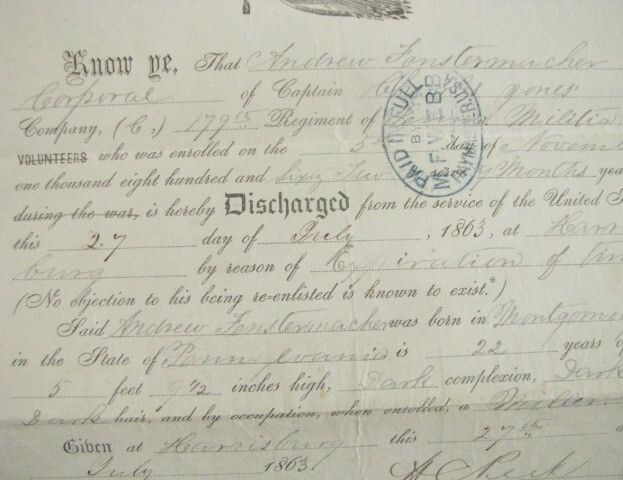 Know ye, That Andrew Fenstermacher
Corporal of Captain Jones
Company, (C,) 179th Regiment of Militia
VOLUNTEERS who was enrolled on the 5 day of Novem
one thousand eight hundred and Sixty Two to serve 9 Months yea
during the war, is hereby Discharged from the service of the United S
this 27 day of July, 1863, at Harris
burg by reason of Expiration of
(No objection to his being re-enlisted is known to exist.*)
Said Andrew Fenstermacher was born in Montgome
in the State of Pennsylvania is 22 years of
5 feet 9 1/2 inches high, Dark complexion, Dark
Dark hair, and by occupation, when enrolled, a Miller
Given at Harrisburg this 27th
July 1863
PAID IN FULL
BY
M.F. WEBB
PAYM'R U.S.A.